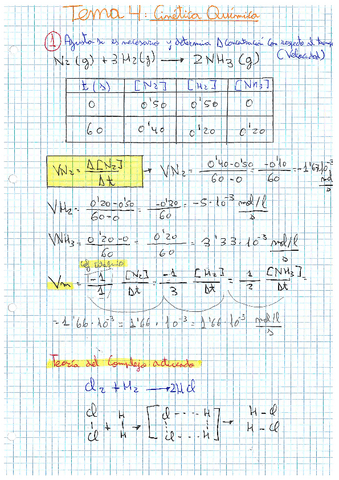 Tema 4: Cinética Química
① Ajusta si es necesario y determina Δ concentración con respecto al tiempo
(Velocidad)
N₂(g) + 3H₂(g) → 2NH₃(g)
t (s) [N₂] [H₂] [NH₃]
0 0'50 0'50 0
60 0'40 0'20 0'20
VN₂ = Δ[N₂]/Δt → VN₂ = 0'40-0'50/60-0 = -0'10/60 = -1'67·10⁻³ mol/l/s
VH₂ = 0'20-0'50/60-0 = -0'30/60 = -5·10⁻³ mol/l/s
VNH₃ = 0'20-0/60 = 0'20/60 = 3'33·10⁻³ mol/l/s
Vm = -1/1 [N₂]/Δt = -1/3 [H₂]/Δt = 1/2 [NH₃]/Δt =
= 1'66·10⁻³ = 1'66·10⁻³ = 1'66·10⁻³ mol/l/s
Teoría del Complejo activado
Cl₂ + H₂ → 2HCl
Cl H Cl ---- H H-Cl
| + | → [ ] →
Cl H Cl ---- H H-Cl